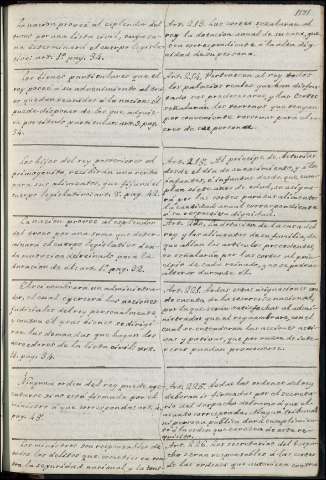 La nacion provee al esplendor del
trono por una lista civil, cuya su-
ma determinará el cuerpo legisla-
tivo: art. 1º pag. 34.
Los bienes particulares que el
rey posee á su advenimiento al tro-
no quedan reunidos á la nacion: él
puede disponer de los que adquie-
re por título particular. art. 9. pag.
34.
Los hijos del rey posteriores al
primogénito recibirán una renta
para sus alimentos, que fijará el
cuerpo legislativo: art. 8. pag. 42.
La nacion provee al esplendor
del trono por una suma que deter-
minará el cuerpo legislativo
para la
duracion de él: art.
El rey nombrará un administra-
dor, el cual ejercerá las acciones
judiciales del rey personalmente
y contra el
las demandas que hagan los
acreedores de la lista civil: art.
11. pag. 34.
Ninguna orden del rey puede eje-
cutarse si no está firmada por el
ministro á que corresponda: art. 4.
pag. 48.
Los ministros son responsables de
todos los delitos que cometan con-
tra la seguridad nacional y la cons-
Art. 213. Las cortes señalarán al
rey la dotacion anual de su casa, que
sea correspondiente á la alta dig-
nidad de su persona.
Art. 214. Pertenecen al rey todos
los palacios reales que han disfru-
tado sus predecesores, y las cortes
señalarán los terrenos que tengan
por conveniente reservar para el re-
creo de su persona.
Art. 215. Al príncipe de Asturias
desde el dia de su nacimiento, y á los
infantes é infantas desde que cum-
plan siete años de edad, se asigna-
rá por las cortes para sus alimentos
la cantidad anual correspondiente
á su respectiva dignidad.
Art. 220. La dotacion de la casa del
rey y los alimentos de su familia, de
que hablan los artículos precedentes,
se señalarán por las cortes al prin-
cipio de cada reinado, y no se podrán
alterar durante él.
Art. 221. Todas estas asignaciones son
de cuenta de la tesorería nacional,
por la que serán satisfechas al admi-
nistrador que el rey nombrare, con el
cual se entenderán las acciones acti-
vas y pasivas, que por razon de inte-
reses puedan promoverse.
Art. 225. Todas las órdenes del rey
deberán ir firmadas por el secreta-
rio del despacho del ramo á que el
asunto corresponda. Ningun tribunal
ni persona pública dará cumplimien-
to á la orden que carezca de este re-
quisito.
Art. 226. Los secretarios del despa-
cho serán responsables á las cortes
de las órdenes que autoricen contra